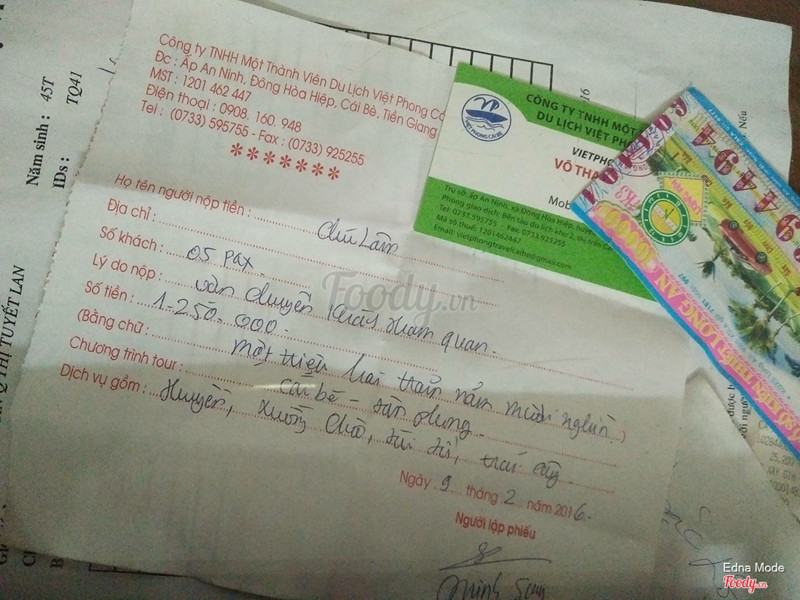 Công ty TNHH Một Thành Viên Du Lịch Việt Phong Cá
Đc : Ấp An Ninh, Đông Hòa Hiệp, Cái Bè, Tiền Giang
MST : 1201 462 447
Điện thoại : 0908. 160. 948
Tel : (0733) 595755 - Fax : (0733) 925255
*******
Họ tên người nộp tiền : Chú Lâm
Địa chỉ :
Số khách : 05 pax.
Lý do nộp : vận chuyển khách tham quan.
Số tiền : 1.250.000.
(Bằng chữ : một triệu hai trăm năm mươi nghìn.)
Chương trình tour : Cái bè - tân phong.
Dịch vụ gồm : thuyền, xuồng chèo, tài tử, trái cây.
Ngày 9 tháng 2 năm 2016.
Người lập phiếu
CÔNG TY TNHH MỘT
DU LỊCH VIỆT PHO
VIỆT PHONG CÁI BÈ
VIETPH
VÕ THA
Mob
Trụ sở: ấp An Ninh, xã Đông Hòa Hiệp, huyện
Phòng giao dịch: Bến tàu du lịch khu 2, thị trấn C
Tel: 0733.595755 Fax: 0733.925255
Mã số thuế: 1201462447
Email: vietphongtravelcaibe@gmail.com
Năm sinh : 45T
IDs : TQ41
THỊ TUYẾT LAN
Nếu
Foody.vn
Edna Mode
Foody.vn